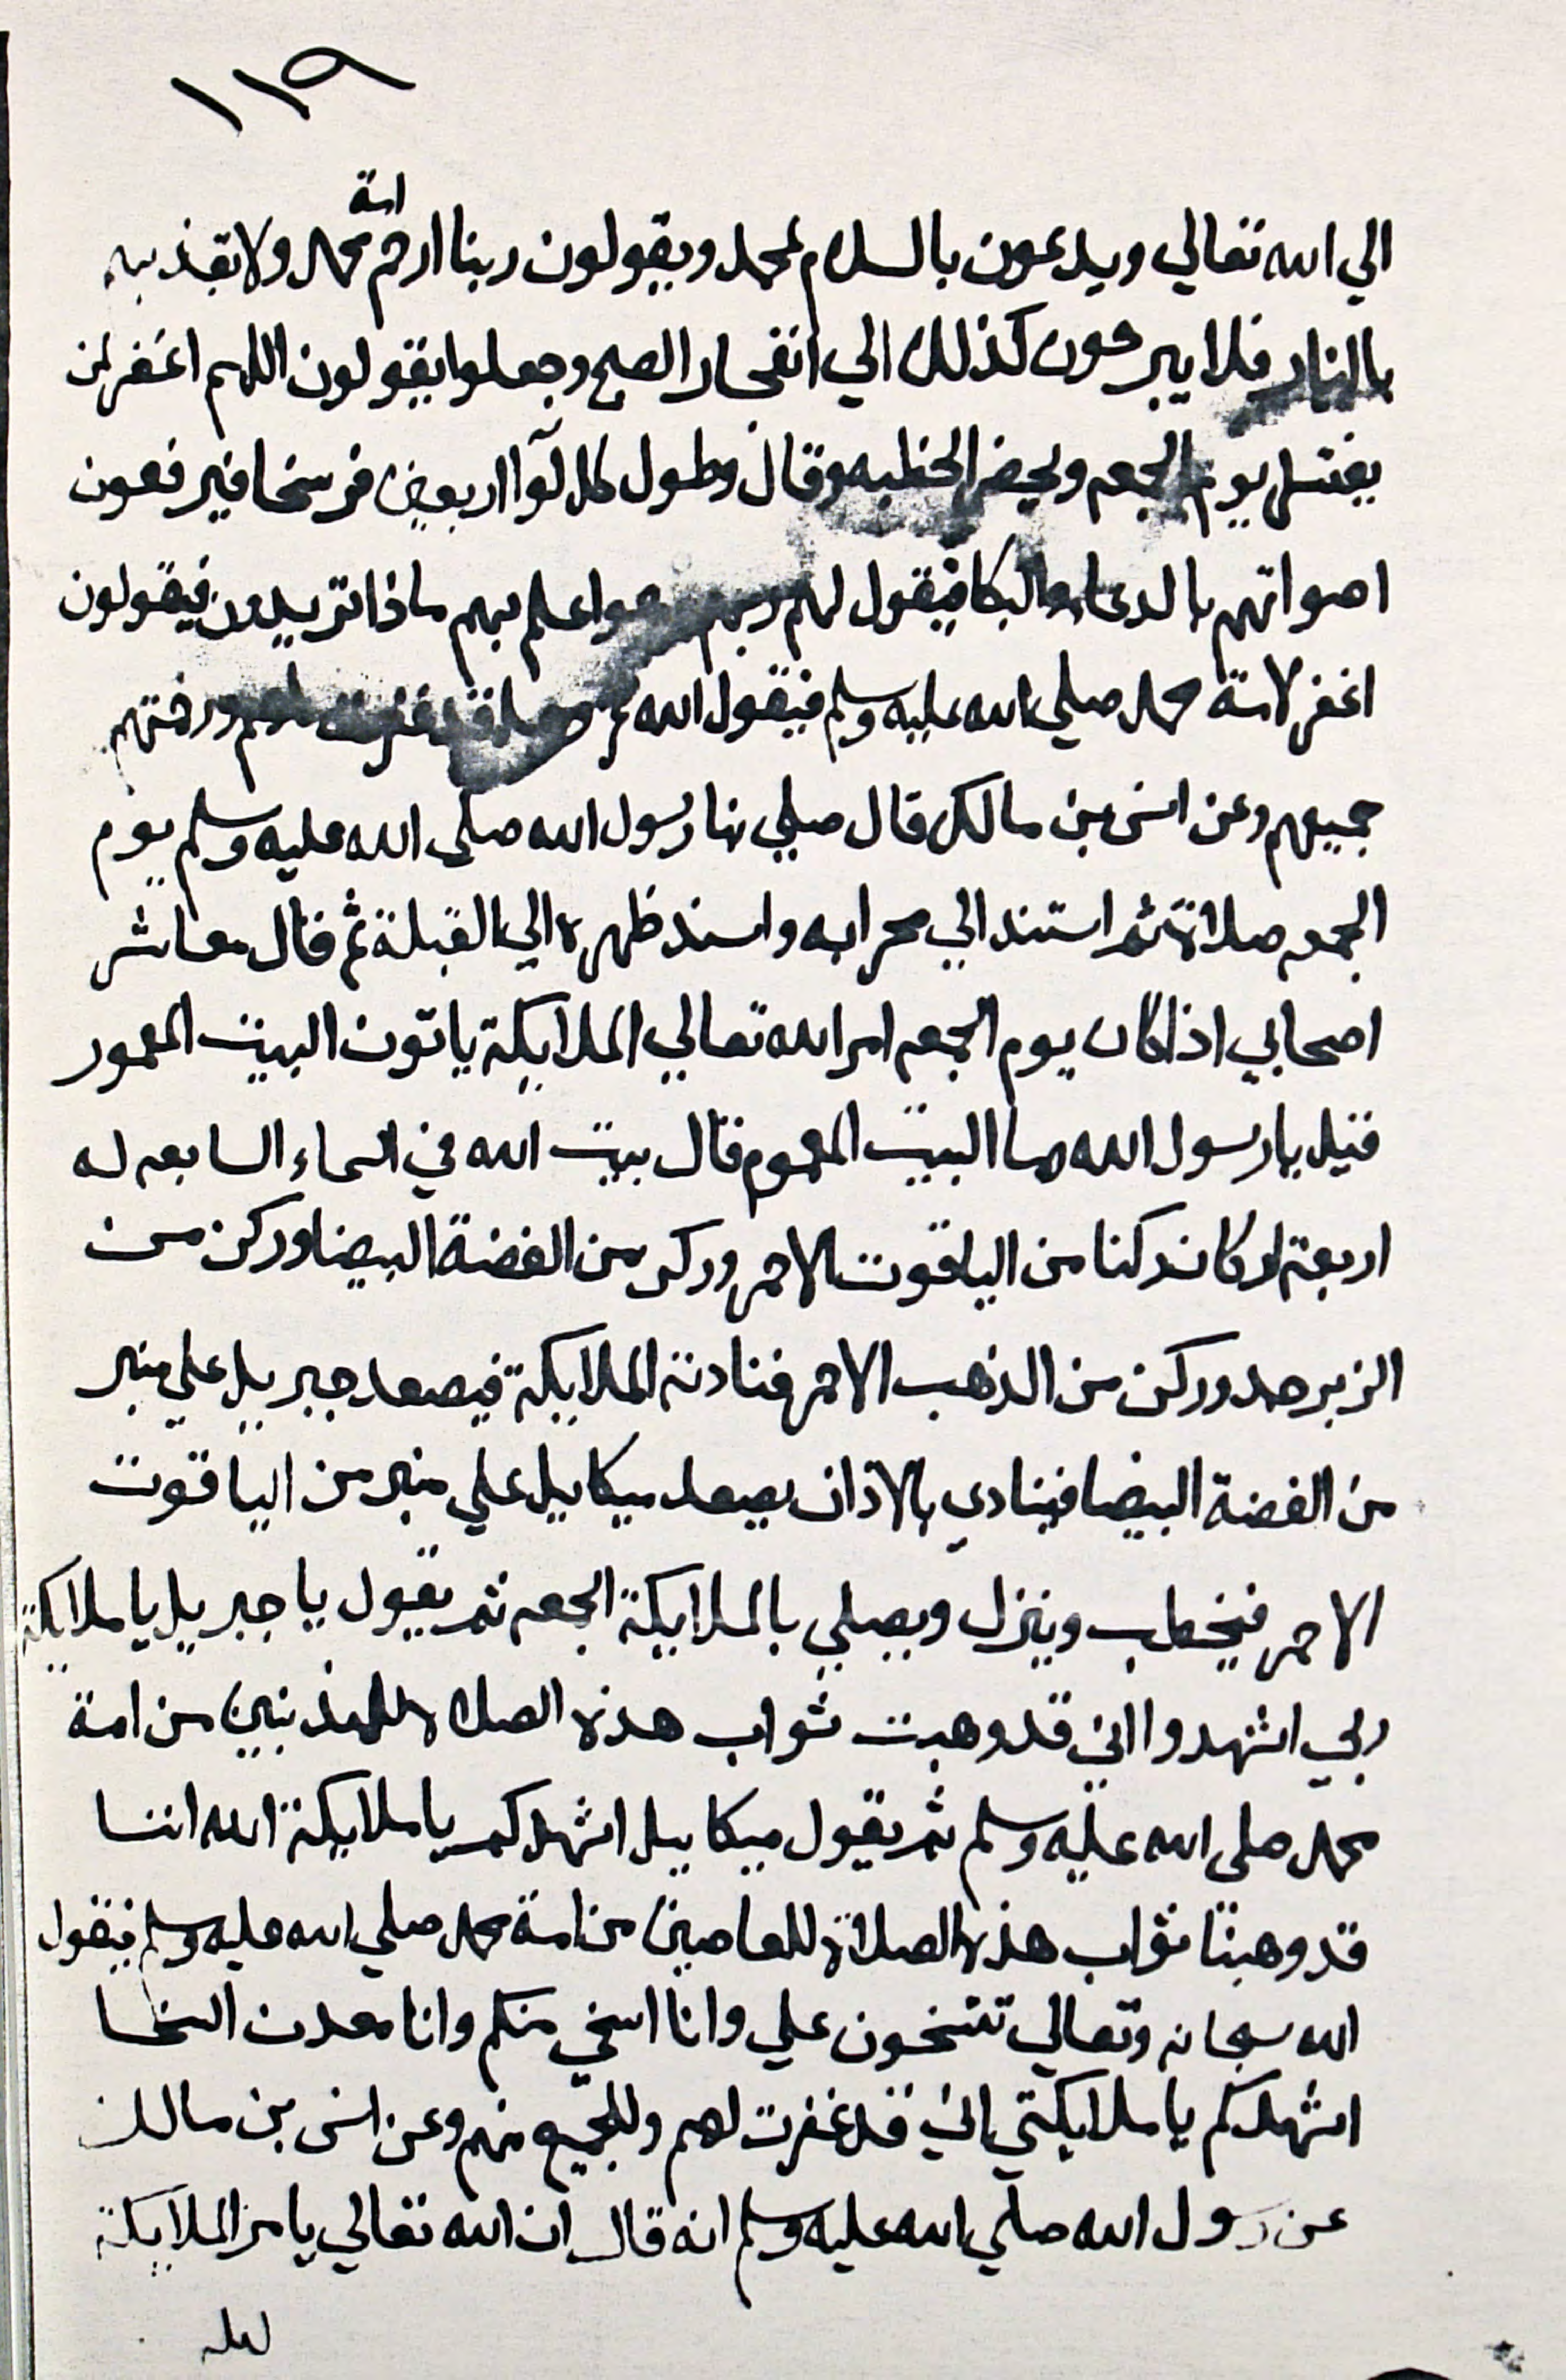 ١١٩
امة
الي الله تعالي ويدعون بالسلام لمحمد ويقولون ربنا ارحم محمد ولا تعذبهم
بالنار فلا يبرحون كذلك الي انفجار الصبح وجعلوا يقولون اللهم اغفر لمن
يغتسل يوم الجمعه ويحضر الخطبه وقال وطول كل لوآ اربعين فرسخا فيرفعون
اصواتهم بالدعا والبكا فيقول لهم ربهم وهو اعلم بهم ماذا تريدون فيقولون
اغفر لامة محمد صلي الله عليه وسلم فيقول الله عز وجل قد غفرت لهم ورحمتهم
جميعهم وعن انس بن مالك قال صلي بنا رسول الله صلي الله عليه وسلم يوم
الجمعه صلاة ثم استند الي محرابه واسند ظهره الي القبلة ثم قال معاشر
اصحابي اذا كان يوم الجمعه امر الله تعالي الملايكة ياتون البيت المعمور
فقيل يا رسول الله وما البيت المعموم قال بيت الله في السماء السابعه له
اربعة اركان ركنا من الياقوت الاحمر وركن من الفضة البيضا وركن من
الزبرجد وركن من الذهب الاحمر فنادته الملايكة فيصعد جبريل علي منبر
من الفضة البيضا فينادي بالاذان يصعد ميكاييل علي منبر من الياقوت
الاحمر فيخطب وينزل ويصلي بالملايكة الجمعه ثم يقول يا جبريل يا ملايكة
ربي اشهدوا اني قد وهبت ثواب هذه الصلاه للمذنبين من امة
محمد صلي الله عليه وسلم ثم يقول ميكاييل اشهدكم يا ملايكة الله اننا
قد وهبنا ثواب هذه الصلاة للعاصين من امة محمد صلي الله عليه وسلم فيقول
الله سبحانه وتعالي تتسخون علي وانا اسخي منكم وانا معدن السخا
اشهدكم يا ملايكتي اني قد غفرت لهم وللجميع منهم وعن انس بن مالك
عن رسول الله صلي الله عليه وسلم انه قال ان الله تعالي يامر الملايكة